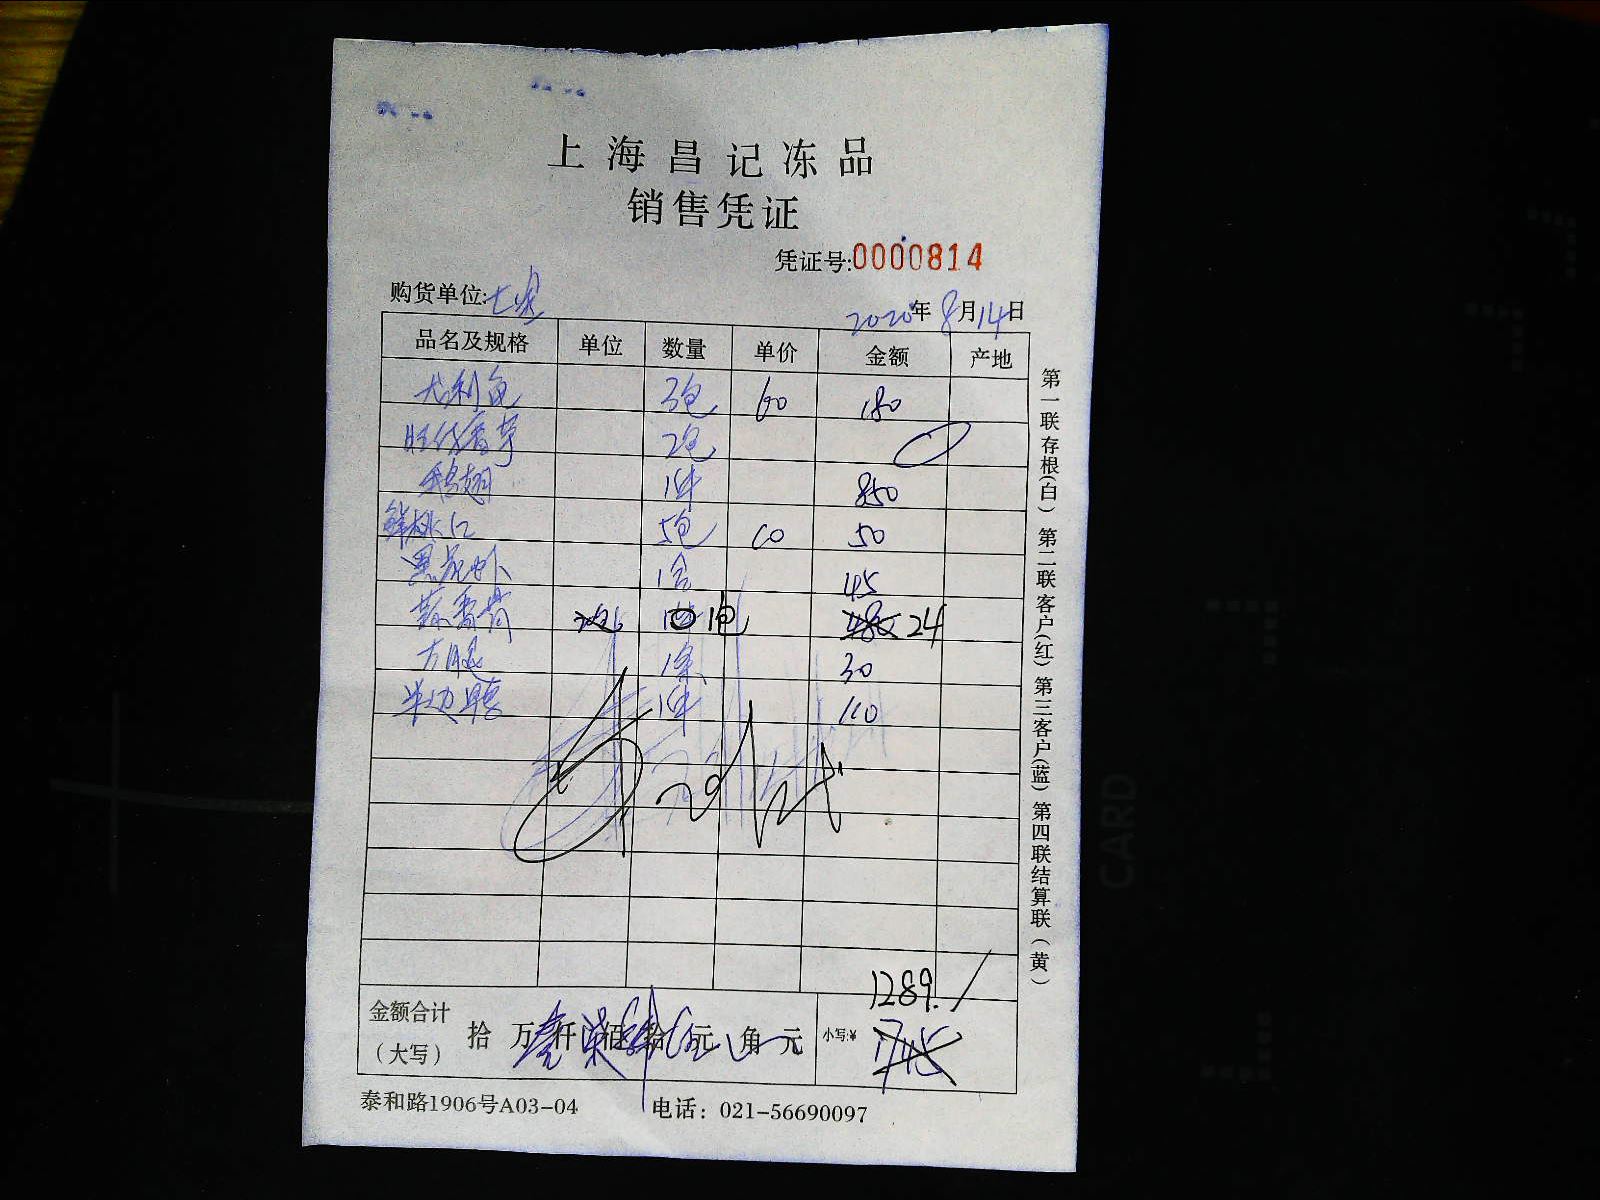 上海昌记冻品
销售凭证
凭证号:0000814
购货单位:
2020年8月14日
品名及规格 单位 数量 单价 金额 产地
尤利鱼 3包 60 180
旺仔香芋 2包
鹅翅 1件 850
鲜桃仁 5包 10 50
1盒 45
1包 24
方腿 1条 30
1件 110
1289.
金额合计
(大写)
拾 万 仟 佰 拾 元 角 元
小写:¥ 1745
泰和路1906号A03-04 电话：021-56690097
第一联存根(白) 第二联客户(红) 第三客户(蓝) 第四联结算联(黄)
CARD